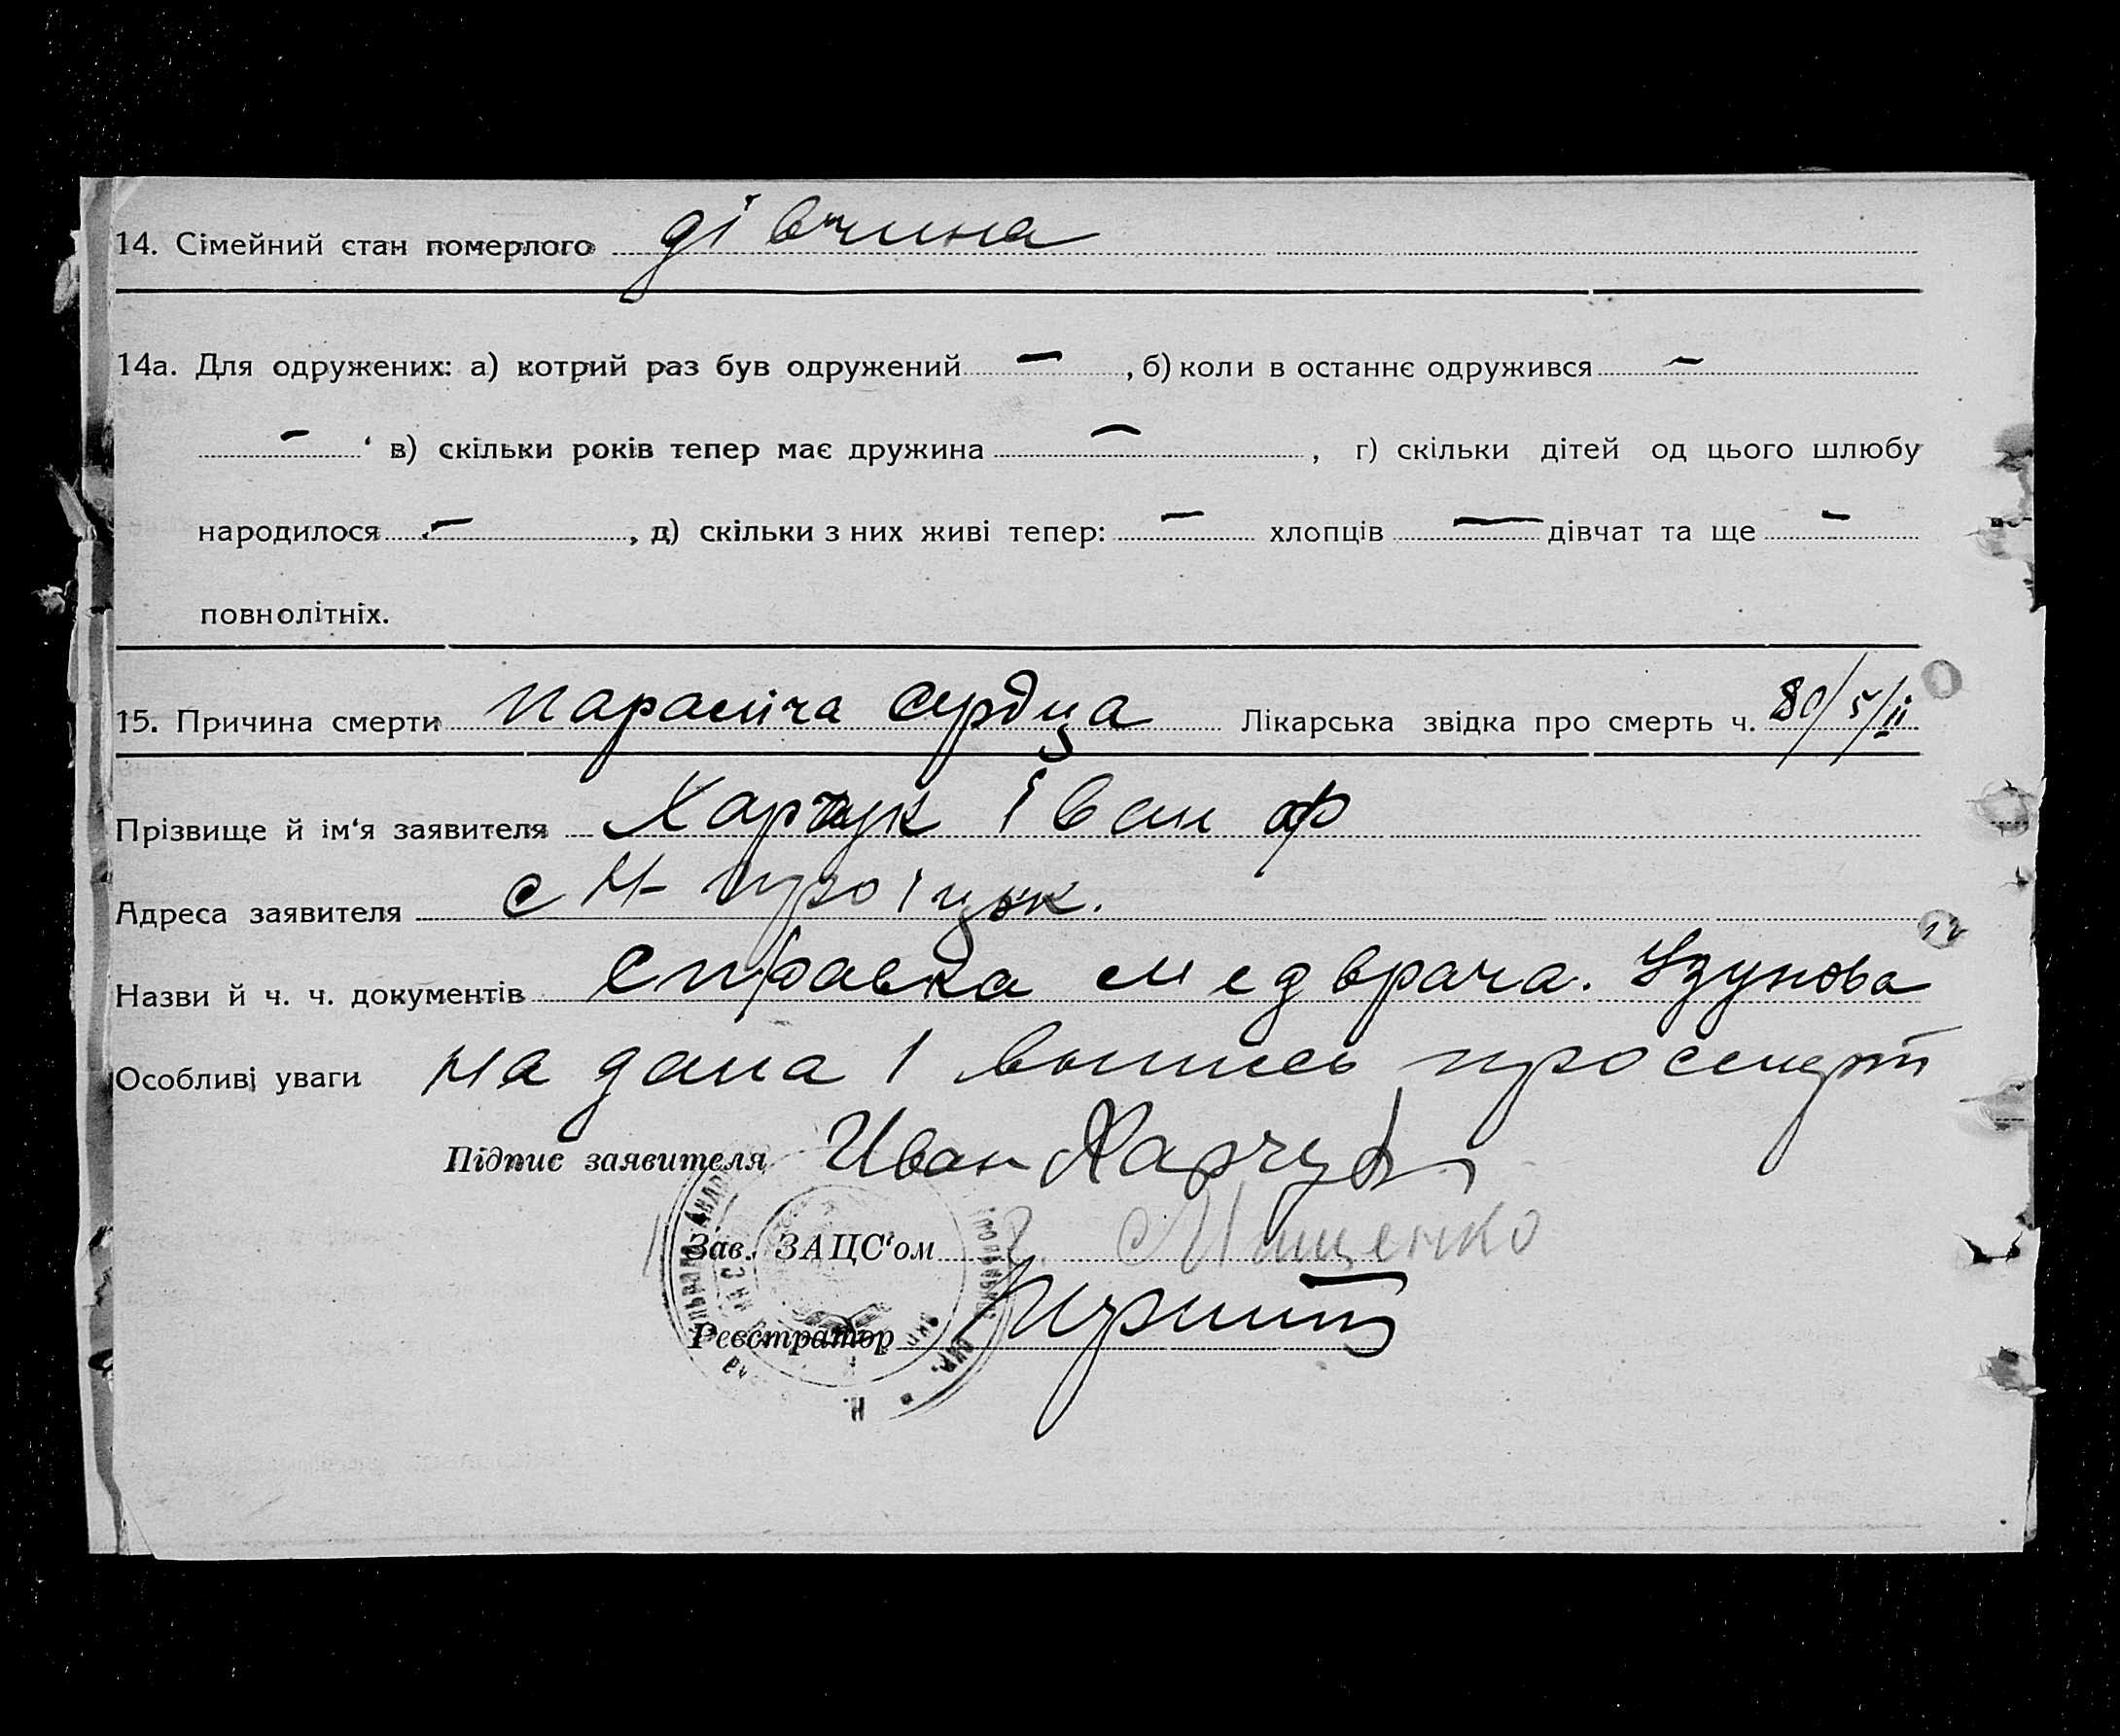 14. Сімейний стан померлого дівчина
14а. Для одружених: а) котрий раз був одружений — , б) коли в останнє одружився —
— ‘ в) скільки років тепер має дружина — , г) скільки дітей од цього шлюбу
народилося — , д) скільки з них живі тепер: — хлопців — дівчат та ще —
повнолітніх.
15. Причина смерти параліча сердца Лікарська звідка про смерть ч. 80/5/II
Прізвище й ім‘я заявителя Харчук Іван Ф
Адреса заявителя с Н-Троїцьк.
Назви й ч. ч. документів справка медврача. Узунова
Особливі уваги На дана 1 выпись про смерт
Підпис заявителя Иван Харчук
Зав. ЗАЦС‘ом Мищенко
Реєстратор